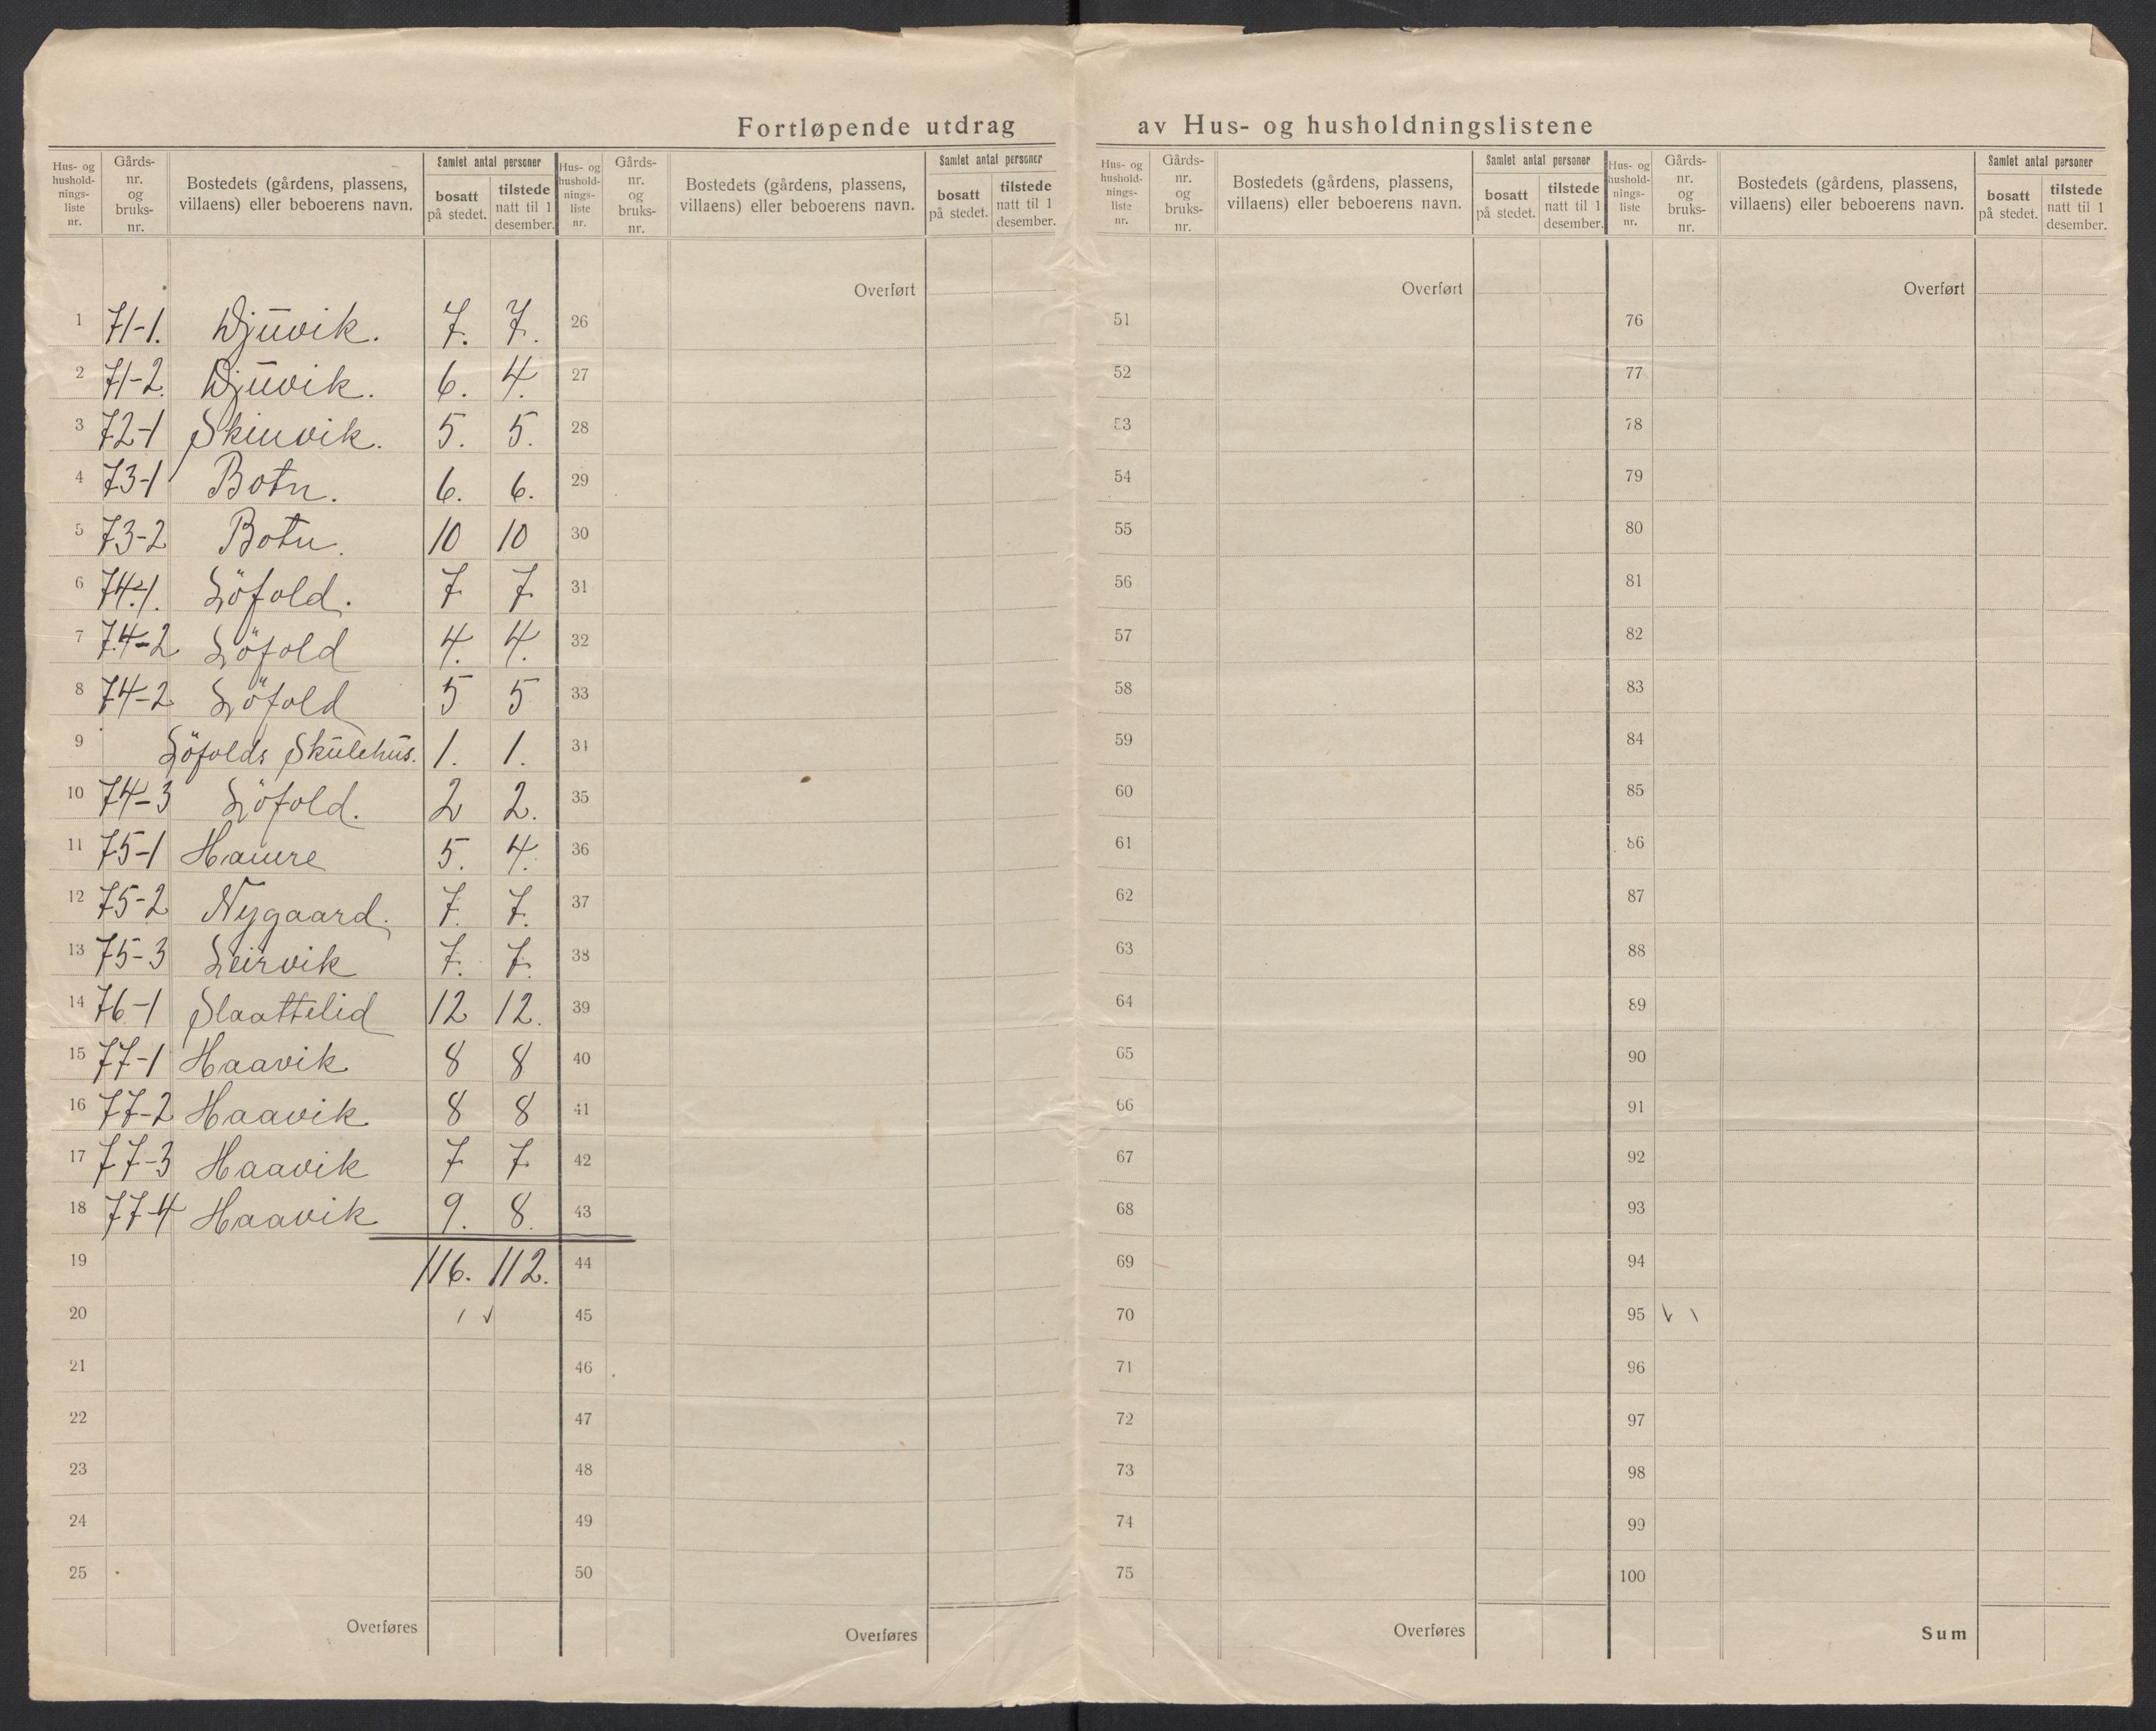 Fortløpende utdrag av Hus- og husholdningslistene
Hus- og hushold-nings-liste nr. | Gårds-nr. og bruks-nr. | Bostedets (gårdens, plassens, villaens) eller beboerens navn. | Samlet antal personer | bosatt på stedet. | tilstede natt til 1 desember.
1 71-1. Djŭvik. 7. 7.
2 71-2. Djŭvik. 6. 4.
3 72-1 Skinvik. 5. 5.
4 73-1 Botn. 6. 6.
5 73-2 Botn. 10 10
6 74-1. Löfold. 7 7
7 74-2 Löfold 4. 4.
8 74-2 Löfold 5 5
9 Löfolds Skŭlehŭs. 1. 1.
10 74-3 Löfold. 2 2.
11 75-1 Hamre 5. 4.
12 75-2 Nygaard. 7. 7.
13 75-3 Leirvik 7. 7.
14 76-1 Slaattelid 12 12.
15 77-1 Haavik 8 8
16 77-2 Haavik 8 8
17 77-3 Haavik 7 7
18 77-4 Haavik 9. 8.
19 116. 112.
20
21
22
23
24
25
Overføres
Hus- og hushold-nings-liste nr. | Gårds-nr. og bruks-nr. | Bostedets (gårdens, plassens, villaens) eller beboerens navn. | Samlet antal personer | bosatt på stedet. | tilstede natt til 1 desember.
Overført
26
27
28
29
30
31
32
33
34
35
36
37
38
39
40
41
42
43
44
45
46
47
48
49
50
Overføres
Hus- og hushold-nings-liste nr. | Gårds-nr. og bruks-nr. | Bostedets (gårdens, plassens, villaens) eller beboerens navn. | Samlet antal personer | bosatt på stedet. | tilstede natt til 1 desember.
Overført
51
52
53
54
55
56
57
58
59
60
61
62
63
64
65
66
67
68
69
70
71
72
73
74
75
Overføres
Hus- og hushold-nings-liste nr. | Gårds-nr. og bruks-nr. | Bostedets (gårdens, plassens, villaens) eller beboerens navn. | Samlet antal personer | bosatt på stedet. | tilstede natt til 1 desember.
Overført
76
77
78
79
80
81
82
83
84
85
86
87
88
89
90
91
92
93
94
95
96
97
98
99
100
Sum